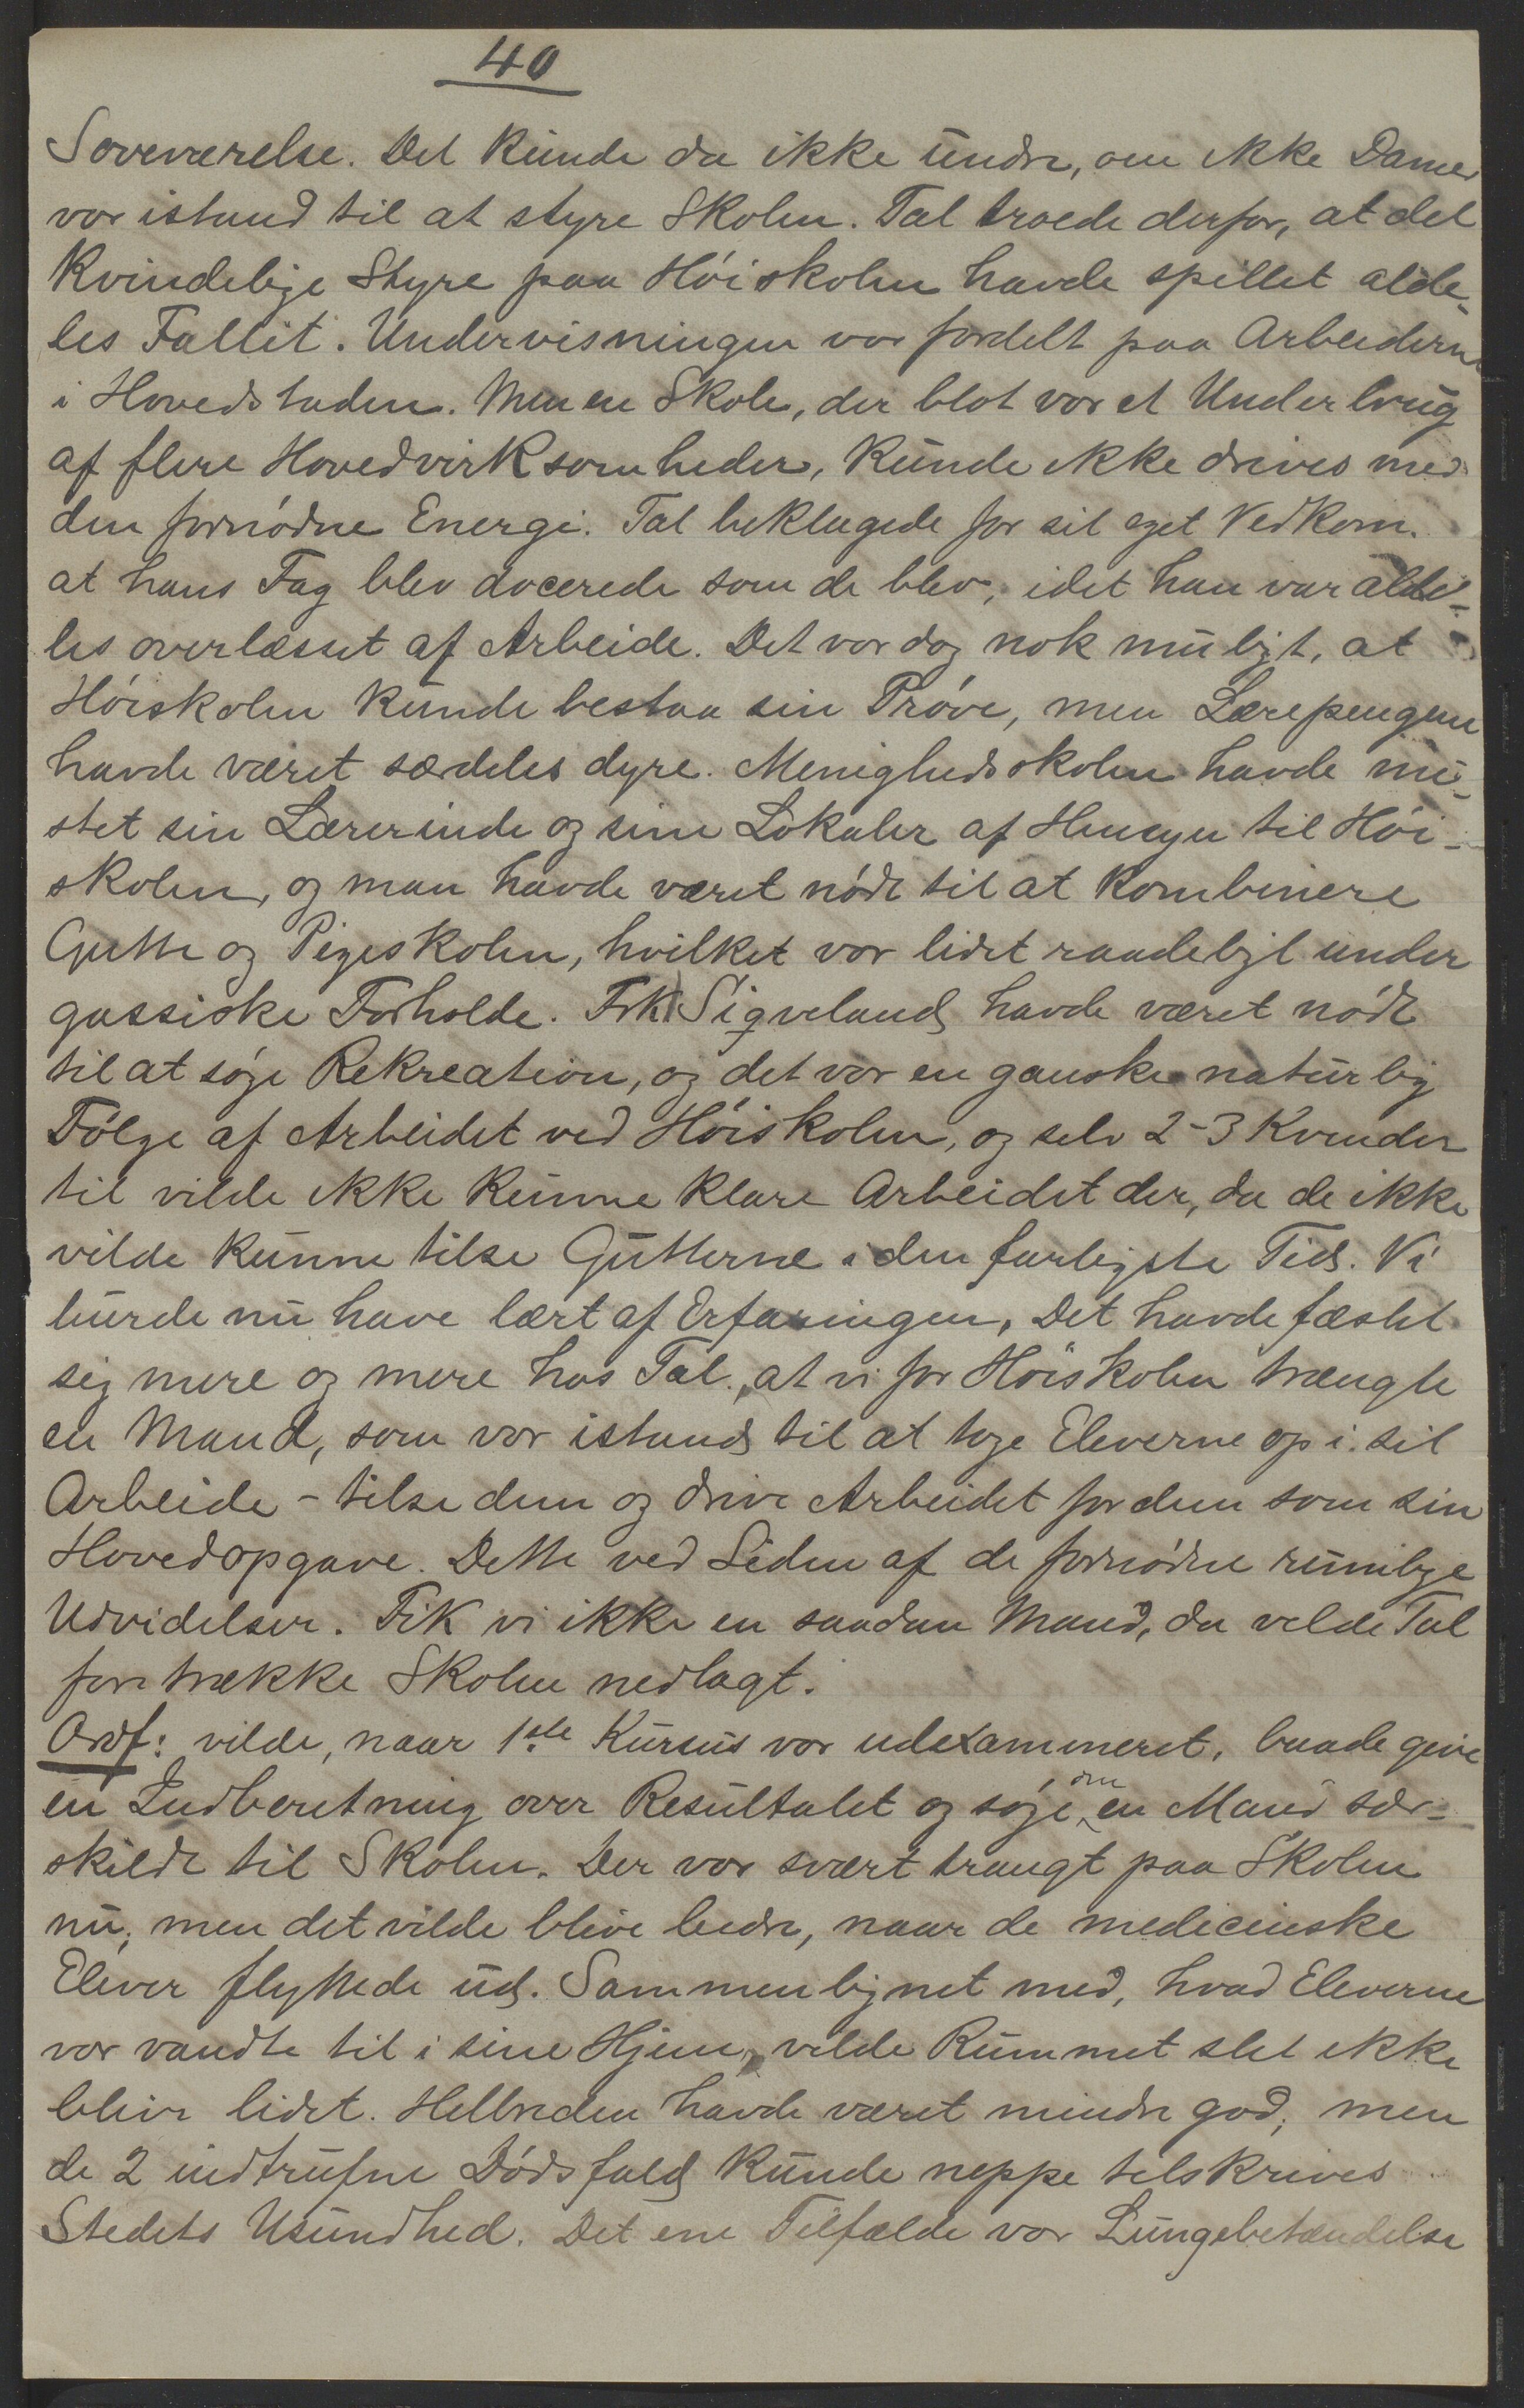 40
Soveværelse. Det kunde da ikke undre, om ikke Damer
var istand til at styre Skolen. Tal. troede derfor, at det
kvindelige Styre paa Høiskolen havde spillet alde-
les Fallit. Undervisningen var fordelt paa Arbeiderne
i Hovedstaden. Men en Skole, der blot var et Underbrug
af flere Hovedvirksomheder, kunde ikke drives med
den fornødne Energi. Tal beklagede for sit eget Vedkom.
at hans Fag blev docerede som de blev, idet han var alde-
les overlæsset af Arbeide. Det var dog nok muligt, at
Høiskolen kunde bestaa sin Prøve, men Lærepengene
havde været særdeles dyre. Menighedsskolen havde mi-
stet sin Lærerinde og sine Lokaler af Hensyn til Høi-
skolen, og man havde været nødt til at kombinere
Gutte og Pigeskolen, hvilket var lidet raadeligt under
gassiske Forholde. Frk. Sigveland havde været nødt
til at søge Rekreation, og det var en ganske naturlig
Følge af Arbeidet ved Høiskolen, og selv 2-3 Kvinder
til vilde ikke kunne klare Arbeidet der, da de ikke
vilde kunne tilse Gutterne i den farligste Tid. Vi
burde nu have lært af Erfaringen, Det havde fæstet
sig mere og mere hos Tal., at vi for Høiskolen trængte
en Mand, som var istand til at tage Eleverne op i sit
Arbeide - tilse dem og drive Arbeidet for dem som sin
Hovedopgave. Dette ved Siden af de fornødne rumlige
Udvidelser. Fik vi ikke en saadan Mand, da vilde Tal
foretrække Skolen nedlagt.
Ordf: vilde, naar 1ste Kursus var udexammineret, baade give
en Indberetning over Resultatet og søge om en Mand sær-
skildt til Skolen. Der var svært trangt paa Skolen
nu, men det vilde blive bedre, naar de medicinske
Elever flyttede ud. Sammenlignet med, hvad Eleverne
var vandte til i sine Hjem, vilde Rummet slet ikke
blive lidet. Helbreden havde været mindre god, men
de 2 indtrufne Dødsfald kunde neppe tilskrives
Stedets Usundhed. Det ene Tilfælde var Lungebetændelse